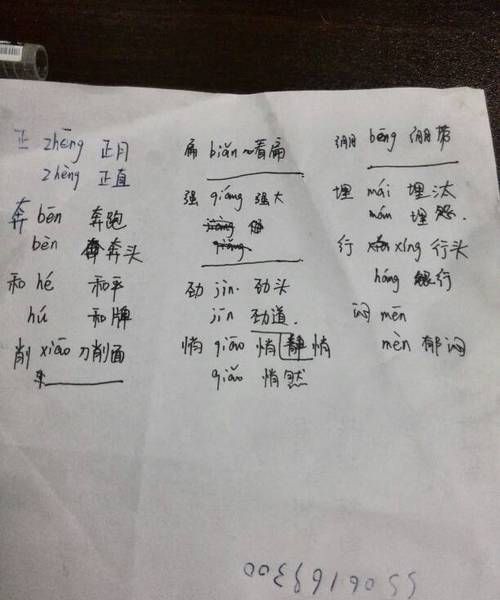 正 zhēng 正月
zhèng 正直
奔 bēn 奔跑
bèn 奔头
和 hé 和平
hú 和牌
削 xiāo 刀削面
扁 biǎn 看扁
强 qiáng 强大
劲 jìn 劲头
jīn 劲道.
悄 qiāo 悄静悄
qiǎo 悄然
绷 bēng 绷带
埋 mái 埋汰
mán 埋怨.
行 xíng 行头
háng 银行
闷 mēn
mèn 郁闷